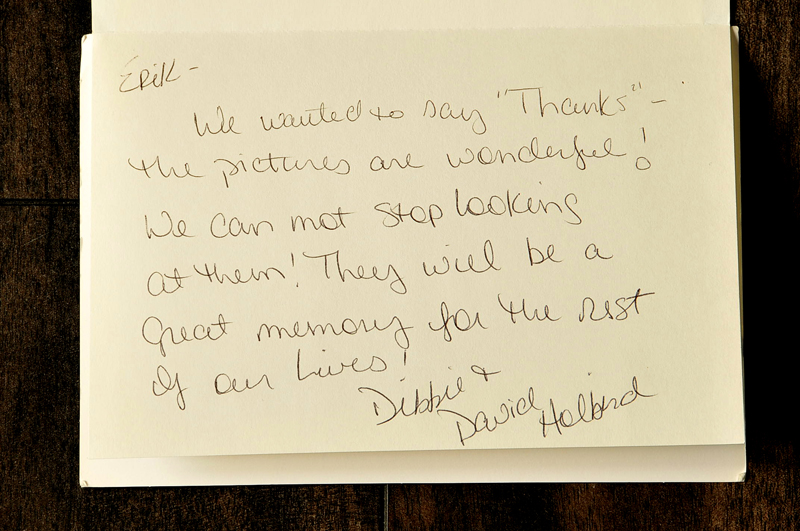 Erik -
We wanted to say "Thanks" -
the pictures are wonderful!
We can not stop looking
at them! They will be a
great memory for the rest
of our lives!
Debbie +
David